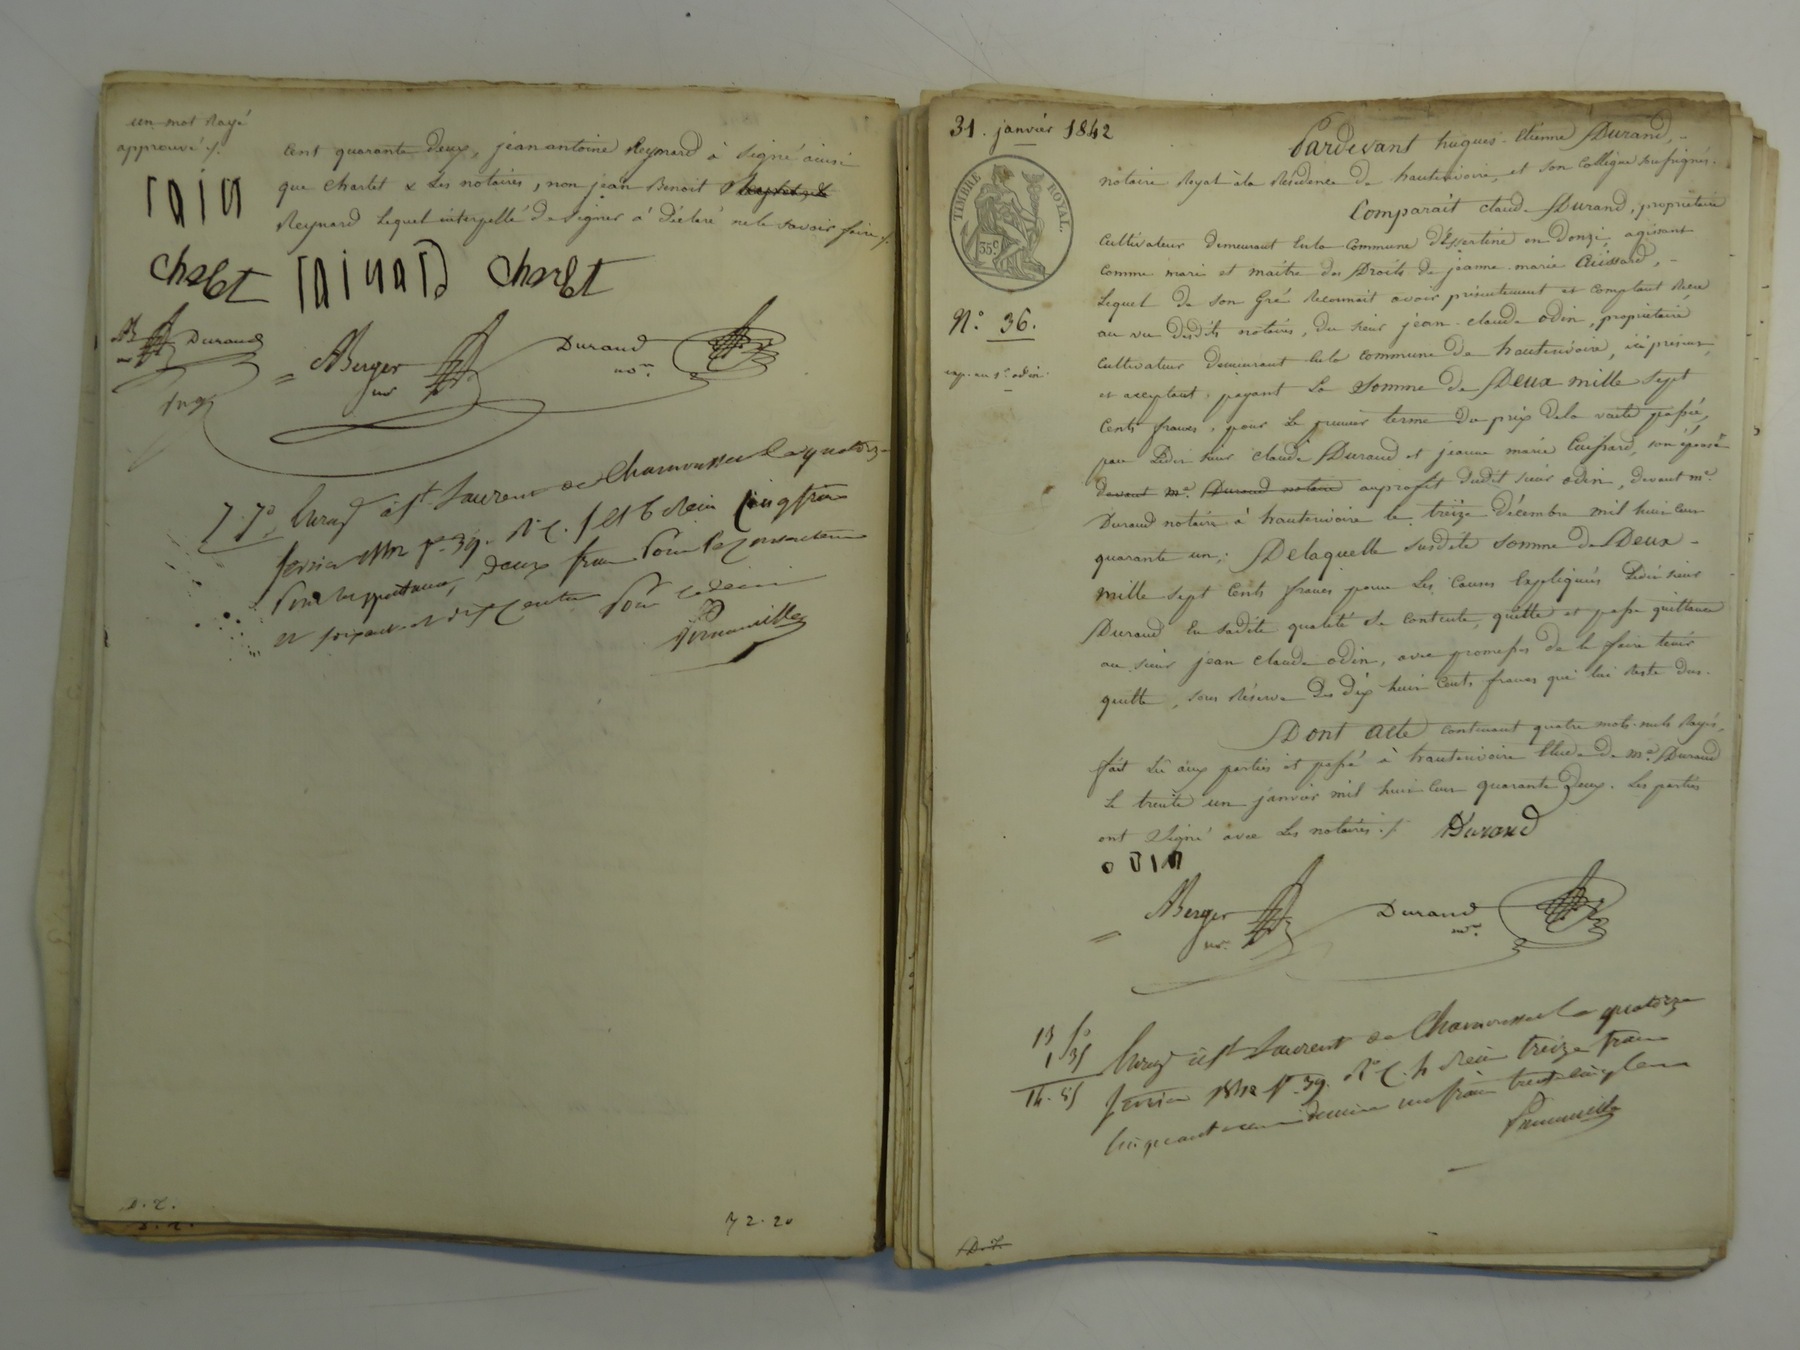 un mot rayé
approuvé /.
cent quarante deux, jean antoine Reynard à signé ainsi
que Charlet & les notaires, non jean Benoit
Reynard lequel interpellé de signer à déclaré ne le savoir faire /.
Charlet Charlet
Durand
ABerger Durand
nre
7.70 Enregé à St Laurent de Chamousset le quatorze
fevrier 1842 fo. 39. Ro C. 5 et 6 Recu cinq francs
pour la quittance, deux francs pour le consentement
et soixante et dix centimes pour le decime
D. 2.
72.20
31. janvier 1842
Pardevant hugues-Etienne Durand,
notaire Royal à la Résidence de hauterivoire, et son Collègue soussignés.
TIMBRE ROYAL.
35 c
Comparait claude Durand, propriétaire
cultivateur demeurant en la commune d'Essertine en Donzi, agissant
comme mari et maître des Droits de jeanne marie Cuissard,
Lequel de son Gré Reconnait avoir présentement et comptant Recu
au vu desdits notaires, du sieur jean-claude odin, propriétaire
No. 36.
cultivateur demeurant en la commune de hauterivoire, ici présent,
exp. au sr. odin.
et acceptant, payant La Somme de Deux mille Sept
Cents francs, pour Le premier terme du prix de la vente passée,
par Ledit sieur claude Durand et jeanne marie Cuissard, son épouse
devant me. Durand notaire au profit dudit sieur odin, devant me.
Durand notaire à hauterivoire le treize décembre mil huit cent
quarante un; De laquelle susdite somme de Deux
mille sept Cents francs pour Les Causes Expliquées Ledit sieur
Durand En sadite qualité Se contente, quitte et passe quittance
au sieur jean claude odin, avec promesse de le faire tenir
quitte, sous Réserve Des dix huit Cents francs qui lui Reste dus.
Dont Acte contenant quatre mots nuls Rayés,
fait Lu aux parties et passé à hauterivoire Etude de me. Durand
Le trente un janvier mil huit cent quarante deux. Les parties
ont Signé avec Les notaires. /. Durand
ODIN
ABerger Durand
nre. nre.
13 50
1 35
14.85
Enregé à St Laurent de Chamousset le quatorze
fevrier 1842 fo. 39. Ro C. 4 Recu treize francs
cinquante centimes decime un franc trente cinq centimes